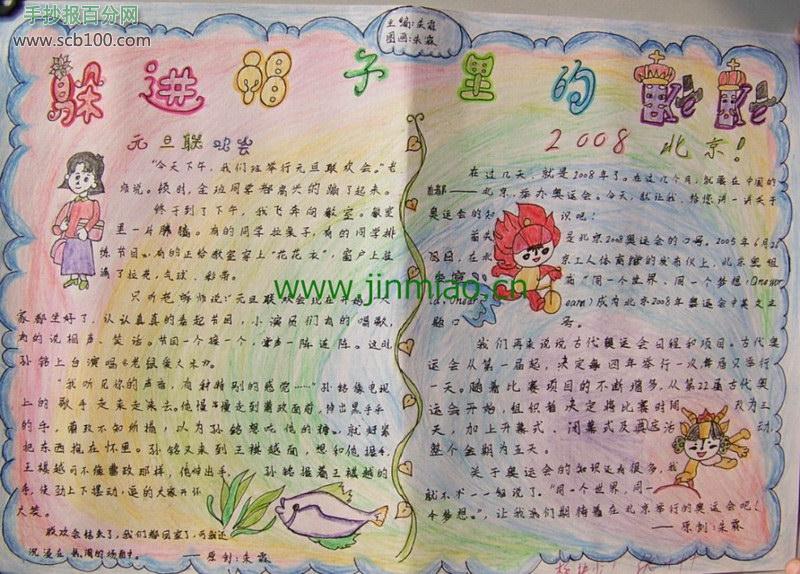 手抄报百分网
www.scb100.com
主编:朱霖
图画:朱霖
躲进帽子里的
元旦联欢会
“今天下午，我们班举行元旦联欢会。”老
师说。顿时，全班同学都高兴的蹦了起来。
终于到了下午，我飞奔向教室。教室
里一片沸腾。有的同学拉桌子，有的同学排
练节目，有的正给教室穿上“花花衣”，窗户上挂
满了拉花，气球，彩带。
只听老师说:“元旦联欢会现在开始。”大
家都坐好了，认认真真的看起节目，小演员们有的唱歌，
有的说相声、笑话。节目一个接一个，掌声一阵连阵。这时
孙铭上台演唱《老鼠爱大米》。
“我听见你的声音，有种特别的感觉……”孙铭像电视
上的歌手走来走去。他慢慢走到董政面前，伸出黑乎乎
的手，董政不知所措，以为孙铭想吃他的糖，就赶紧
把东西抱在怀里。孙铭又来到王棋越面，想和他握手，
王棋越可不像董政那样，他伸出手，孙铭握着王棋越的
手，使劲上下摆动，逗的大家开怀
大笑。
联欢会结束了，我们都回家了，可我还
沉浸在热闹的场面中。
— 原创:朱霖
2008 北京!
在过几天，就是2008年了。在过几个月，就要在中国的
首都——北京，举办奥运会。今天，就让我，给您讲一讲关于
奥运会的知识吧!
首先
是北京2008奥运会的口号。2005年6月26
日，在北京工人体育馆的发布仪上，北京奥组
委宣
“同一个世界，同一个梦想”(One wor
ld One
eam)成为北京2008年奥运会中英文主
题口号。
我们再来说说古代奥运会日程和项目。古代奥
运会从第一届起，决定每四年举行一次每届只举行
一天。随着比赛项目的不断增多，从第22届古代奥
运会开始，组织者决定将比赛时间
改为三
天，加上开幕式、闭幕式及
活动，
整个会期为五天。
关于奥运会的知识还有很多，我
就不才一一细说了。“同一个世界，同一
个梦想。”，让我们期待着在北京举行的奥运会吧!
— 原创:朱霖
www.jinmiao.cn